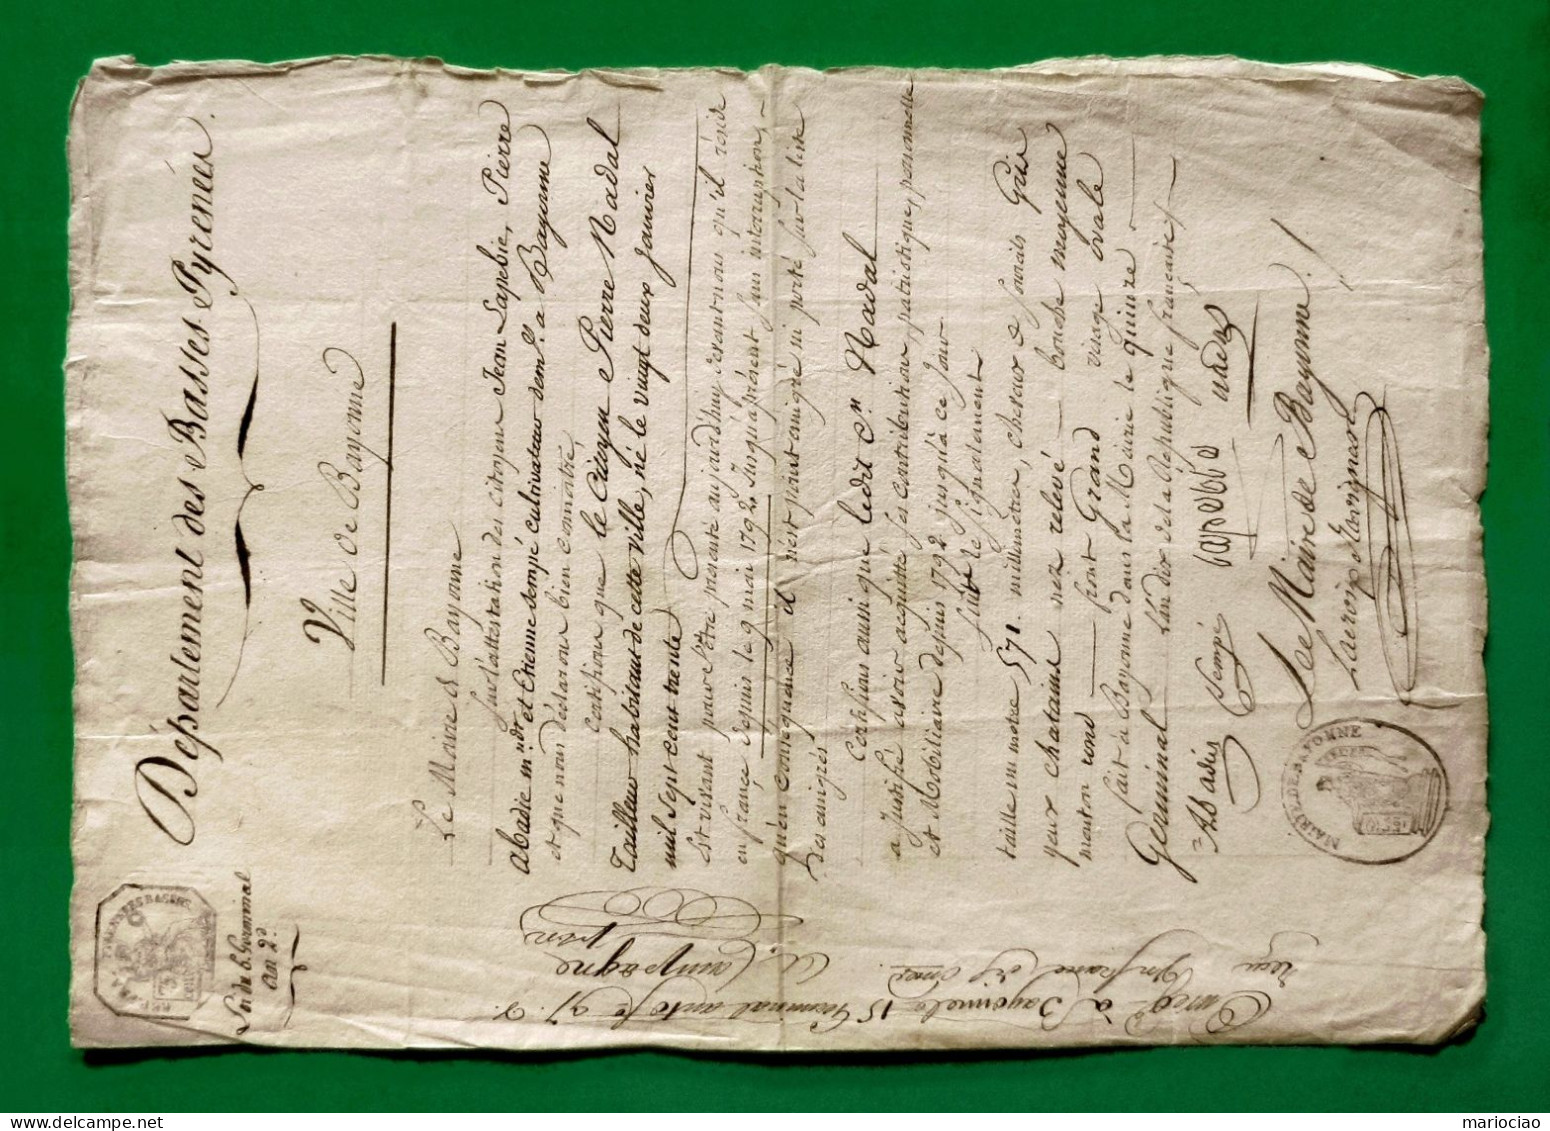 Département des Basses Pyrenées.
Ville de Bayonne
Loi du 6 Germinal
an 2d.
Le Maire de Bayonne
Sur l'attestation des citoyens Jean Lapebie, Pierre
abadie md. et Etienne sempé cultivateur demt. a Bayonne
et que nous déclarons bien connoitre
certifions que le Citoyen Pierre Nadal
Tailleur habitant de cette ville, né le vingt deux janvier
mil sept cent trente
Est vivant pour s'être présenté aujourd'huy devant nous qu'il réside
en france depuis le 9 mai 1792 jusqu'à présent sans interruption,
qu'en conséquence il n'est point émigré ni porté sur la liste
des émigrés
Certifions aussi que ledit Cn. Nadal
a justifié avoir acquitté ses contributions, patriotique, personnelle
et Mobiliaire depuis 1792 jusqu'à ce jour
suit le signalement
taille un metre 571. millimetres, cheveux & sourcils Gris
yeux chatains nez relevé bouche moyenne
menton rond front Grand visage ovale
fait à Bayonne dans la Mairie le quinze
Géerminal L'an dix de la République française
Abadie Sempé lapebie nadal
Le Maire de Bayonne
Lacroix Ravignan
MAIRIE DE BAYONNE
Enregé. à Bayonne le 15 Germinal an 10 fo 97.
reçu un franc dix cmes.